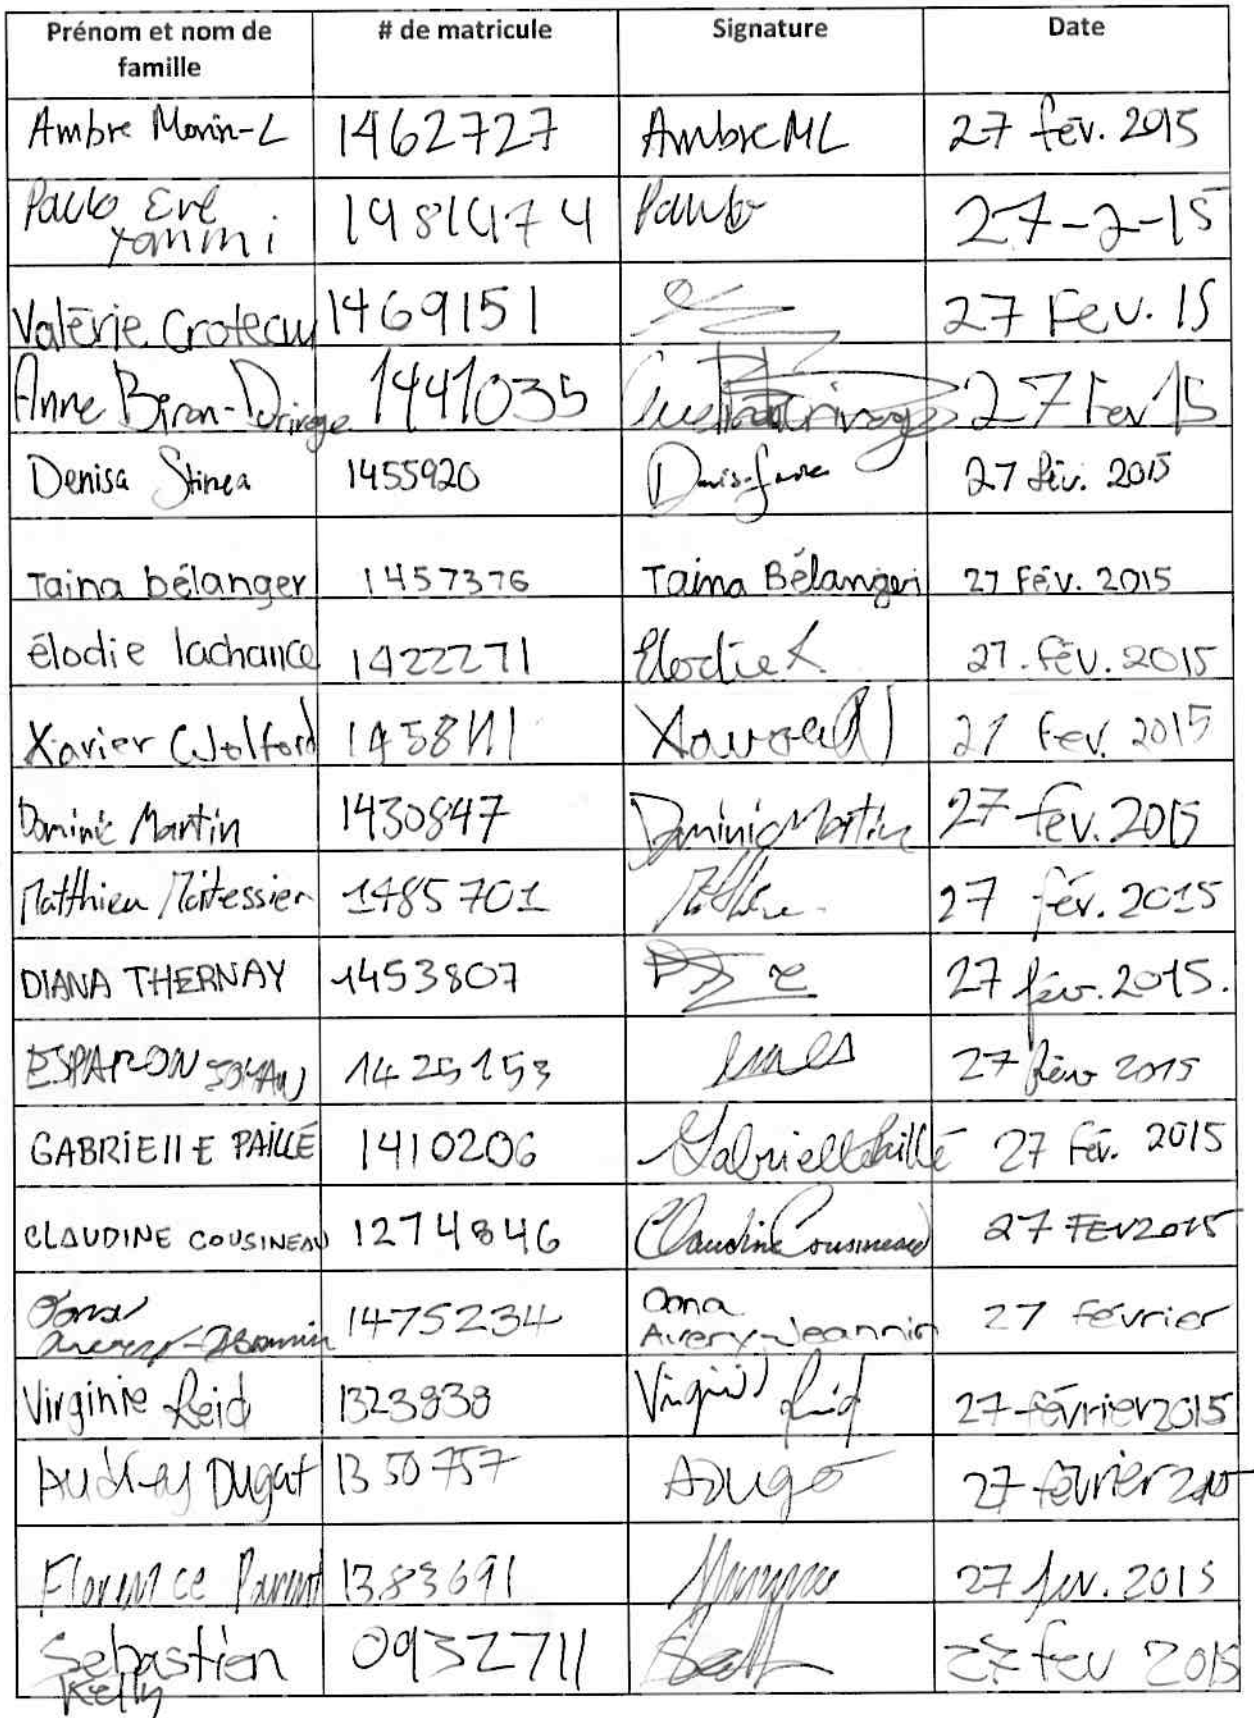 Prénom et nom de famille # de matricule Signature Date
Ambre Morin-L 1462727 Ambre ML 27 fév. 2015
Paulo Eve 1481474 Paulo 27-2-15
Yammi
Valérie Croteau 1469151 27 Fev. 15
Anne Biron-Durivage 1441035 Durivage 27 Fev 15
Denisa Stinea 1455920 27 fév. 2015
Taina bélanger 1457376 Taina Bélanger 27 Fév. 2015
élodie lachance 1422271 Elodie L 27. fév. 2015
Xavier Wolford 1458111 27 Fev. 2015
Dominic Martin 1430847 Dominic Martin 27 fev. 2015
Matthieu 1485701 27 fév. 2015
DIANA THERNAY 1453807 27 fév. 2015.
ESPARON 1425153 27 fév 2015
GABRiEllE PAiLLÉ 1410206 Gabrielle Paillé 27 Fév. 2015
CLAUDINE COUSINEAU 1274846 Claudine Cousineau 27 FEV 2015
Oona 1475234 Oona 27 Février
Avery-Jeannin Avery-Jeannin
Virginie Reid 1323838 Virginie Reid 27 février 2015
Audrey Dugat 1350757 27 février 2015
Florence 1383691 27 fev. 2015
Sebastien 0932711 27 fev 2015
Kelly